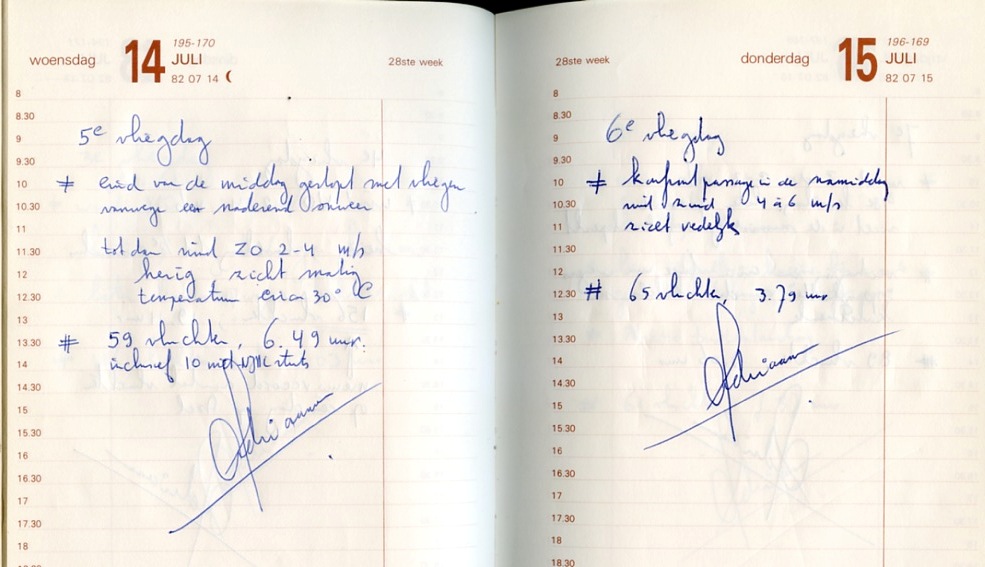 woensdag 14 195-170
JULI
82 07 14
28ste week
8
8.30
9
9.30
10
10.30
11
11.30
12
12.30
13
13.30
14
14.30
15
15.30
16
16.30
17
17.30
18
5e vliegdag
# eind van de middag gestopt met vliegen
vanwege een naderend onweer
tot dan wind ZO 2-4 m/s
heiig zicht matig
temperatuur circa 30° C
# 59 vluchten, 6.49 uur.
inclusief 10 met starts
Adriaan
28ste week
donderdag 15 196-169
JULI
82 07 15
8
8.30
9
9.30
10
10.30
11
11.30
12
12.30
13
13.30
14
14.30
15
15.30
16
16.30
17
17.30
18
18.30
6e vliegdag
# passage in de namiddag
wind zuid 4 à 6 m/s
zicht redelijk
# 65 vluchten, 3.79 uur
Adriaan